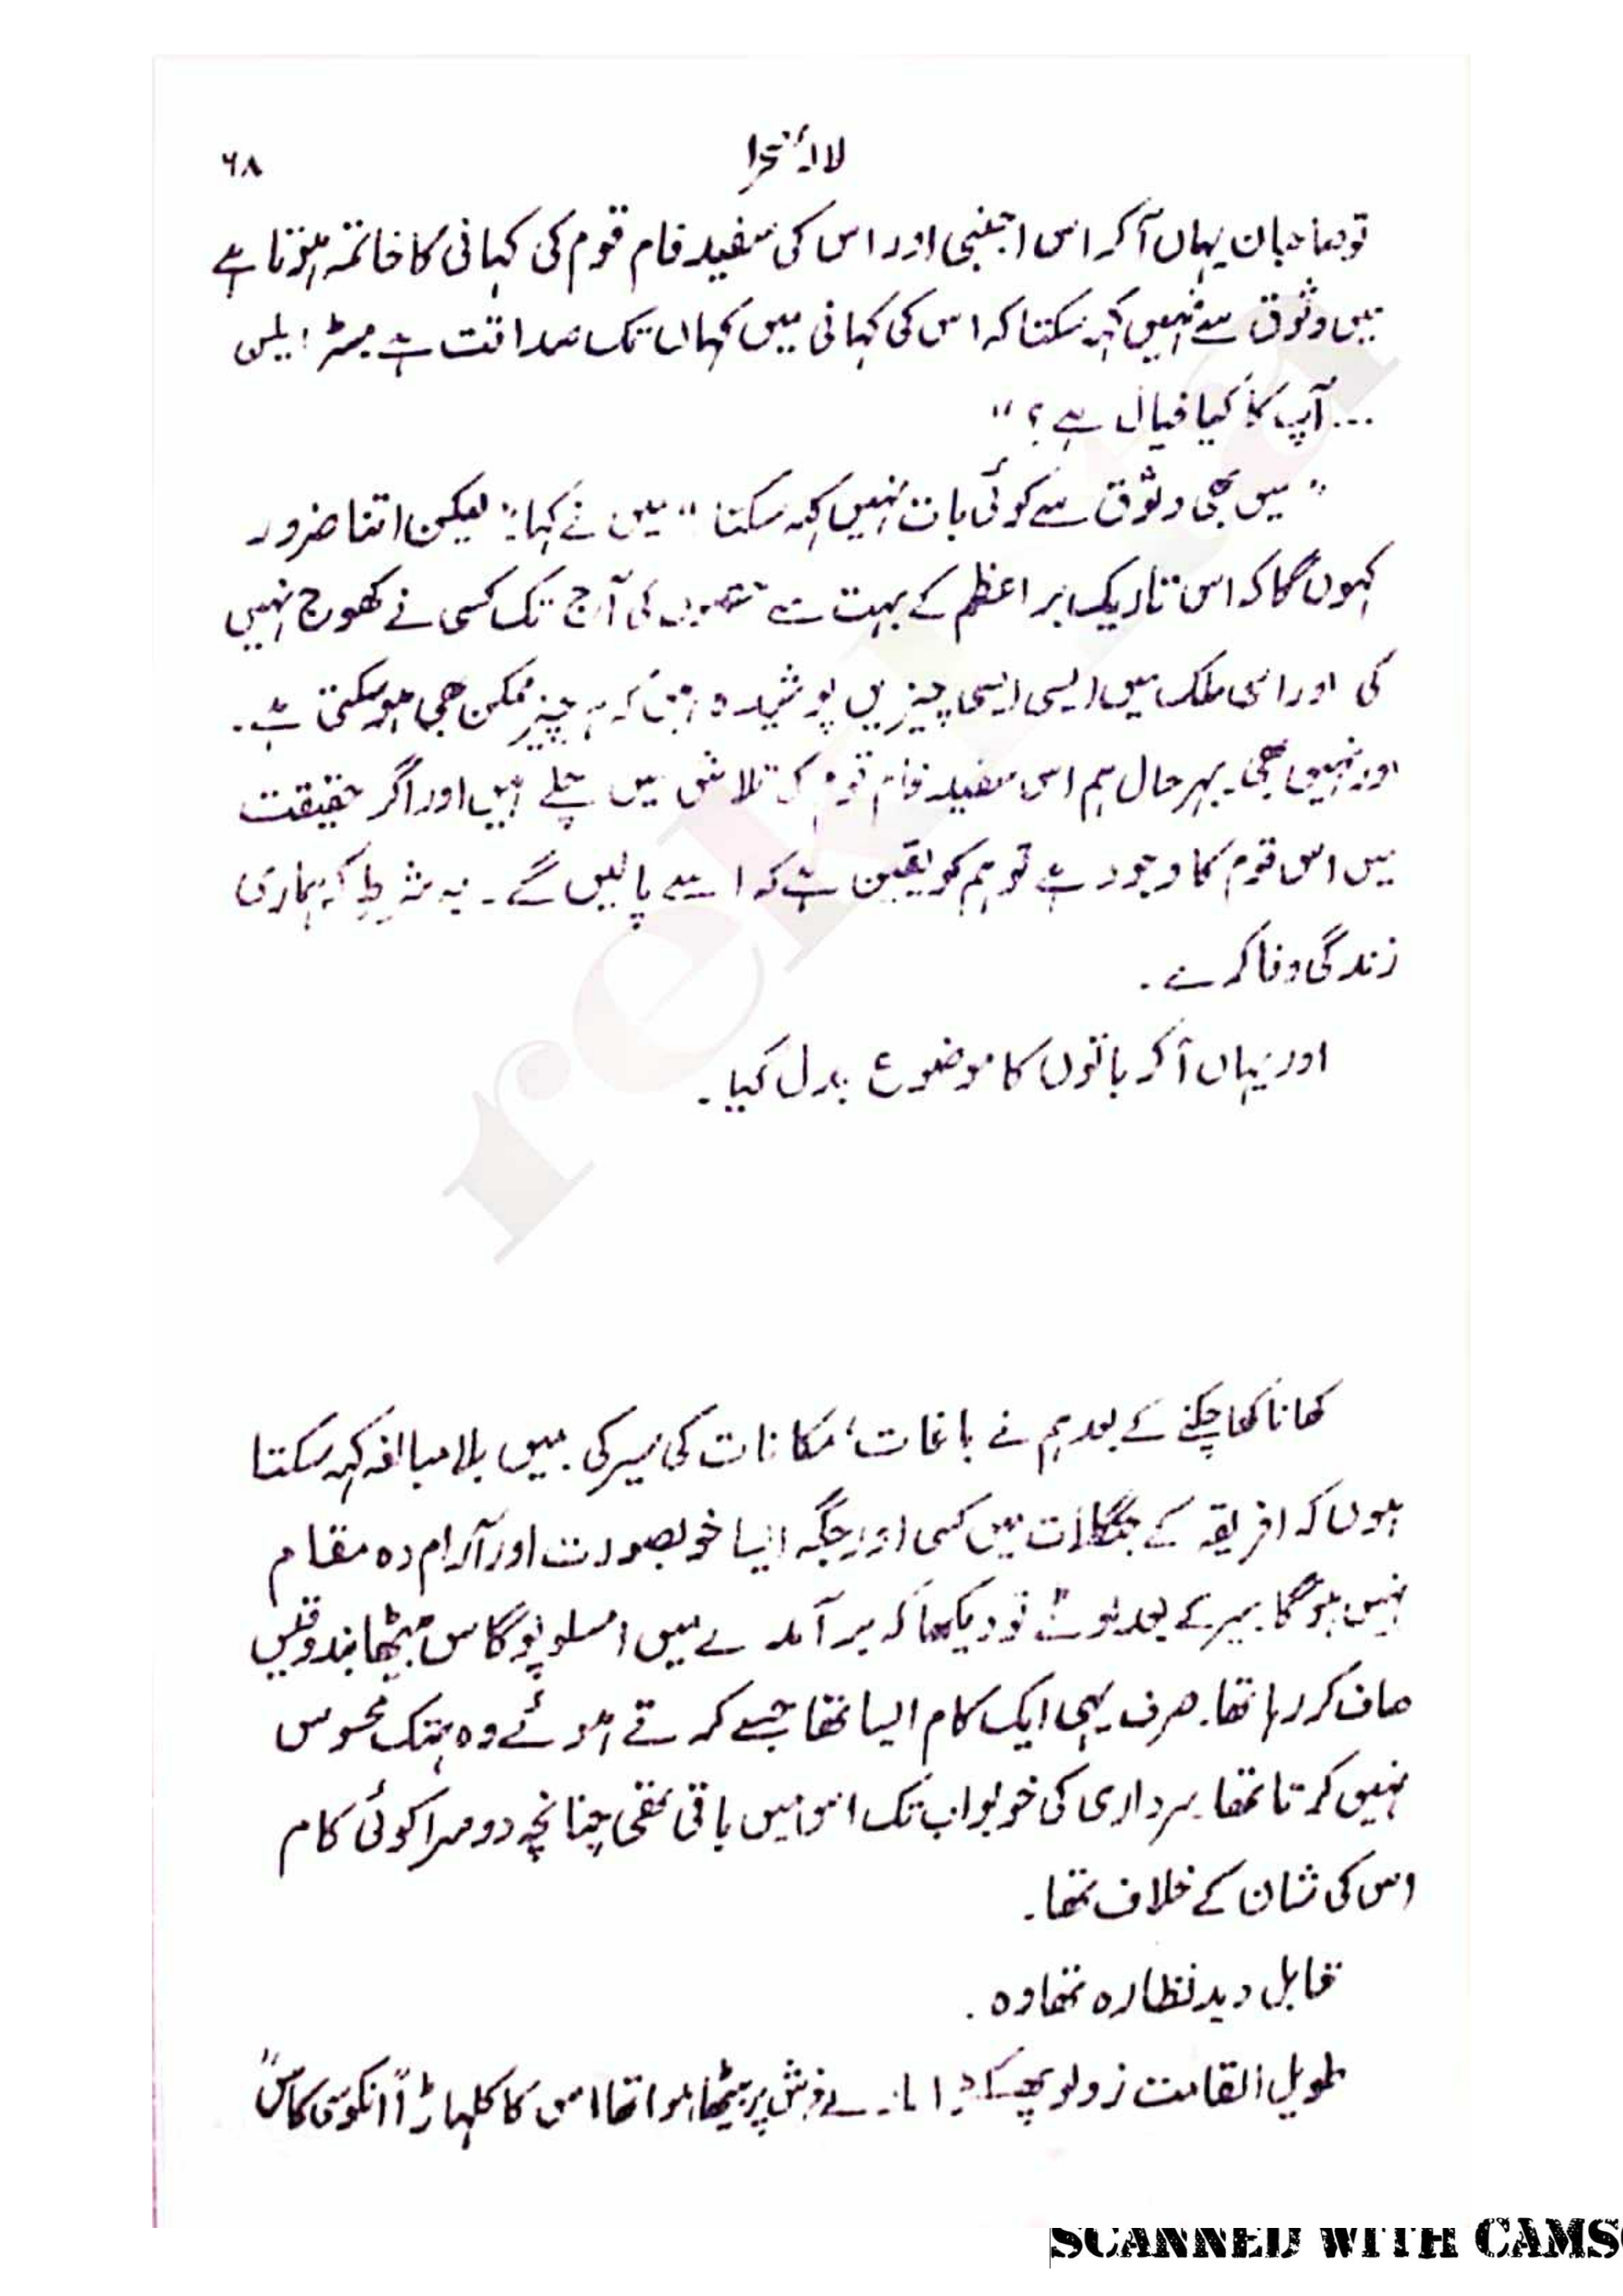 لالۂ صحرا ۶۸
تو صاحبان یہاں آکر اس اجنبی اور اس کی سفید فام قوم کی کہانی کا خاتمہ ہوتا ہے
میں وثوق سے نہیں کہہ سکتا کہ اس کی کہانی میں کہاں تک صداقت ہے مسٹر ایلن
... آپ کا کیا خیال ہے؟"
"میں بھی وثوق سے کوئی بات نہیں کہہ سکتا" میں نے کہا: لیکن اتنا ضرور
کہوں گا کہ اس تاریک بر اعظم کے بہت سے حصوں کی آج تک کسی نے کھوج نہیں
کی اور اس ملک میں ایسی ایسی چیزیں پوشیدہ ہیں کہ ہر چیز ممکن بھی ہو سکتی ہے۔
اور نہیں بھی۔ بہرحال ہم اس سفید فام قوم کی تلاش میں چلے ہیں اور اگر حقیقت
میں اس قوم کا وجود ہے تو ہم کو یقین ہے کہ اسے پالیں گے۔ بہ شرط کہ ہماری
زندگی وفا کرے۔
اور یہاں آکر باتوں کا موضوع بدل گیا۔
کھانا کھا چکنے کے بعد ہم نے باغات، مکانات کی سیر کی۔ میں بلا مبالغہ کہہ سکتا
ہوں کہ افریقہ کے جنگلات میں کسی اور جگہ ایسا خوبصورت اور آرام دہ مقام
نہیں ہوگا۔ سیر کے بعد لوٹے تو دیکھا کہ برآمدے میں امسلوپوگاس بیٹھا بندوقیں
صاف کر رہا تھا۔ صرف یہی ایک کام ایسا تھا جسے کرتے ہوئے وہ ہتک محسوس
نہیں کرتا تھا۔ سرداری کی خو بو اب تک اس میں باقی تھی چنانچہ دوسرا کوئی کام
اس کی شان کے خلاف تھا۔
قابل دید نظارہ تھا وہ۔
طویل القامت زولو پھسکڑا مارے فرش پر بیٹھا ہوا تھا اس کا کلہاڑا "انکوسی کاس"
SCANNED WITH CAMS